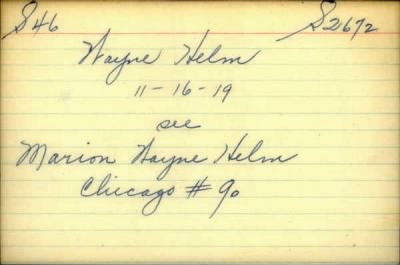 S46 S2672
Wayne Helm
11-16-19
see
Marion Wayne Helm
Chicago # 90